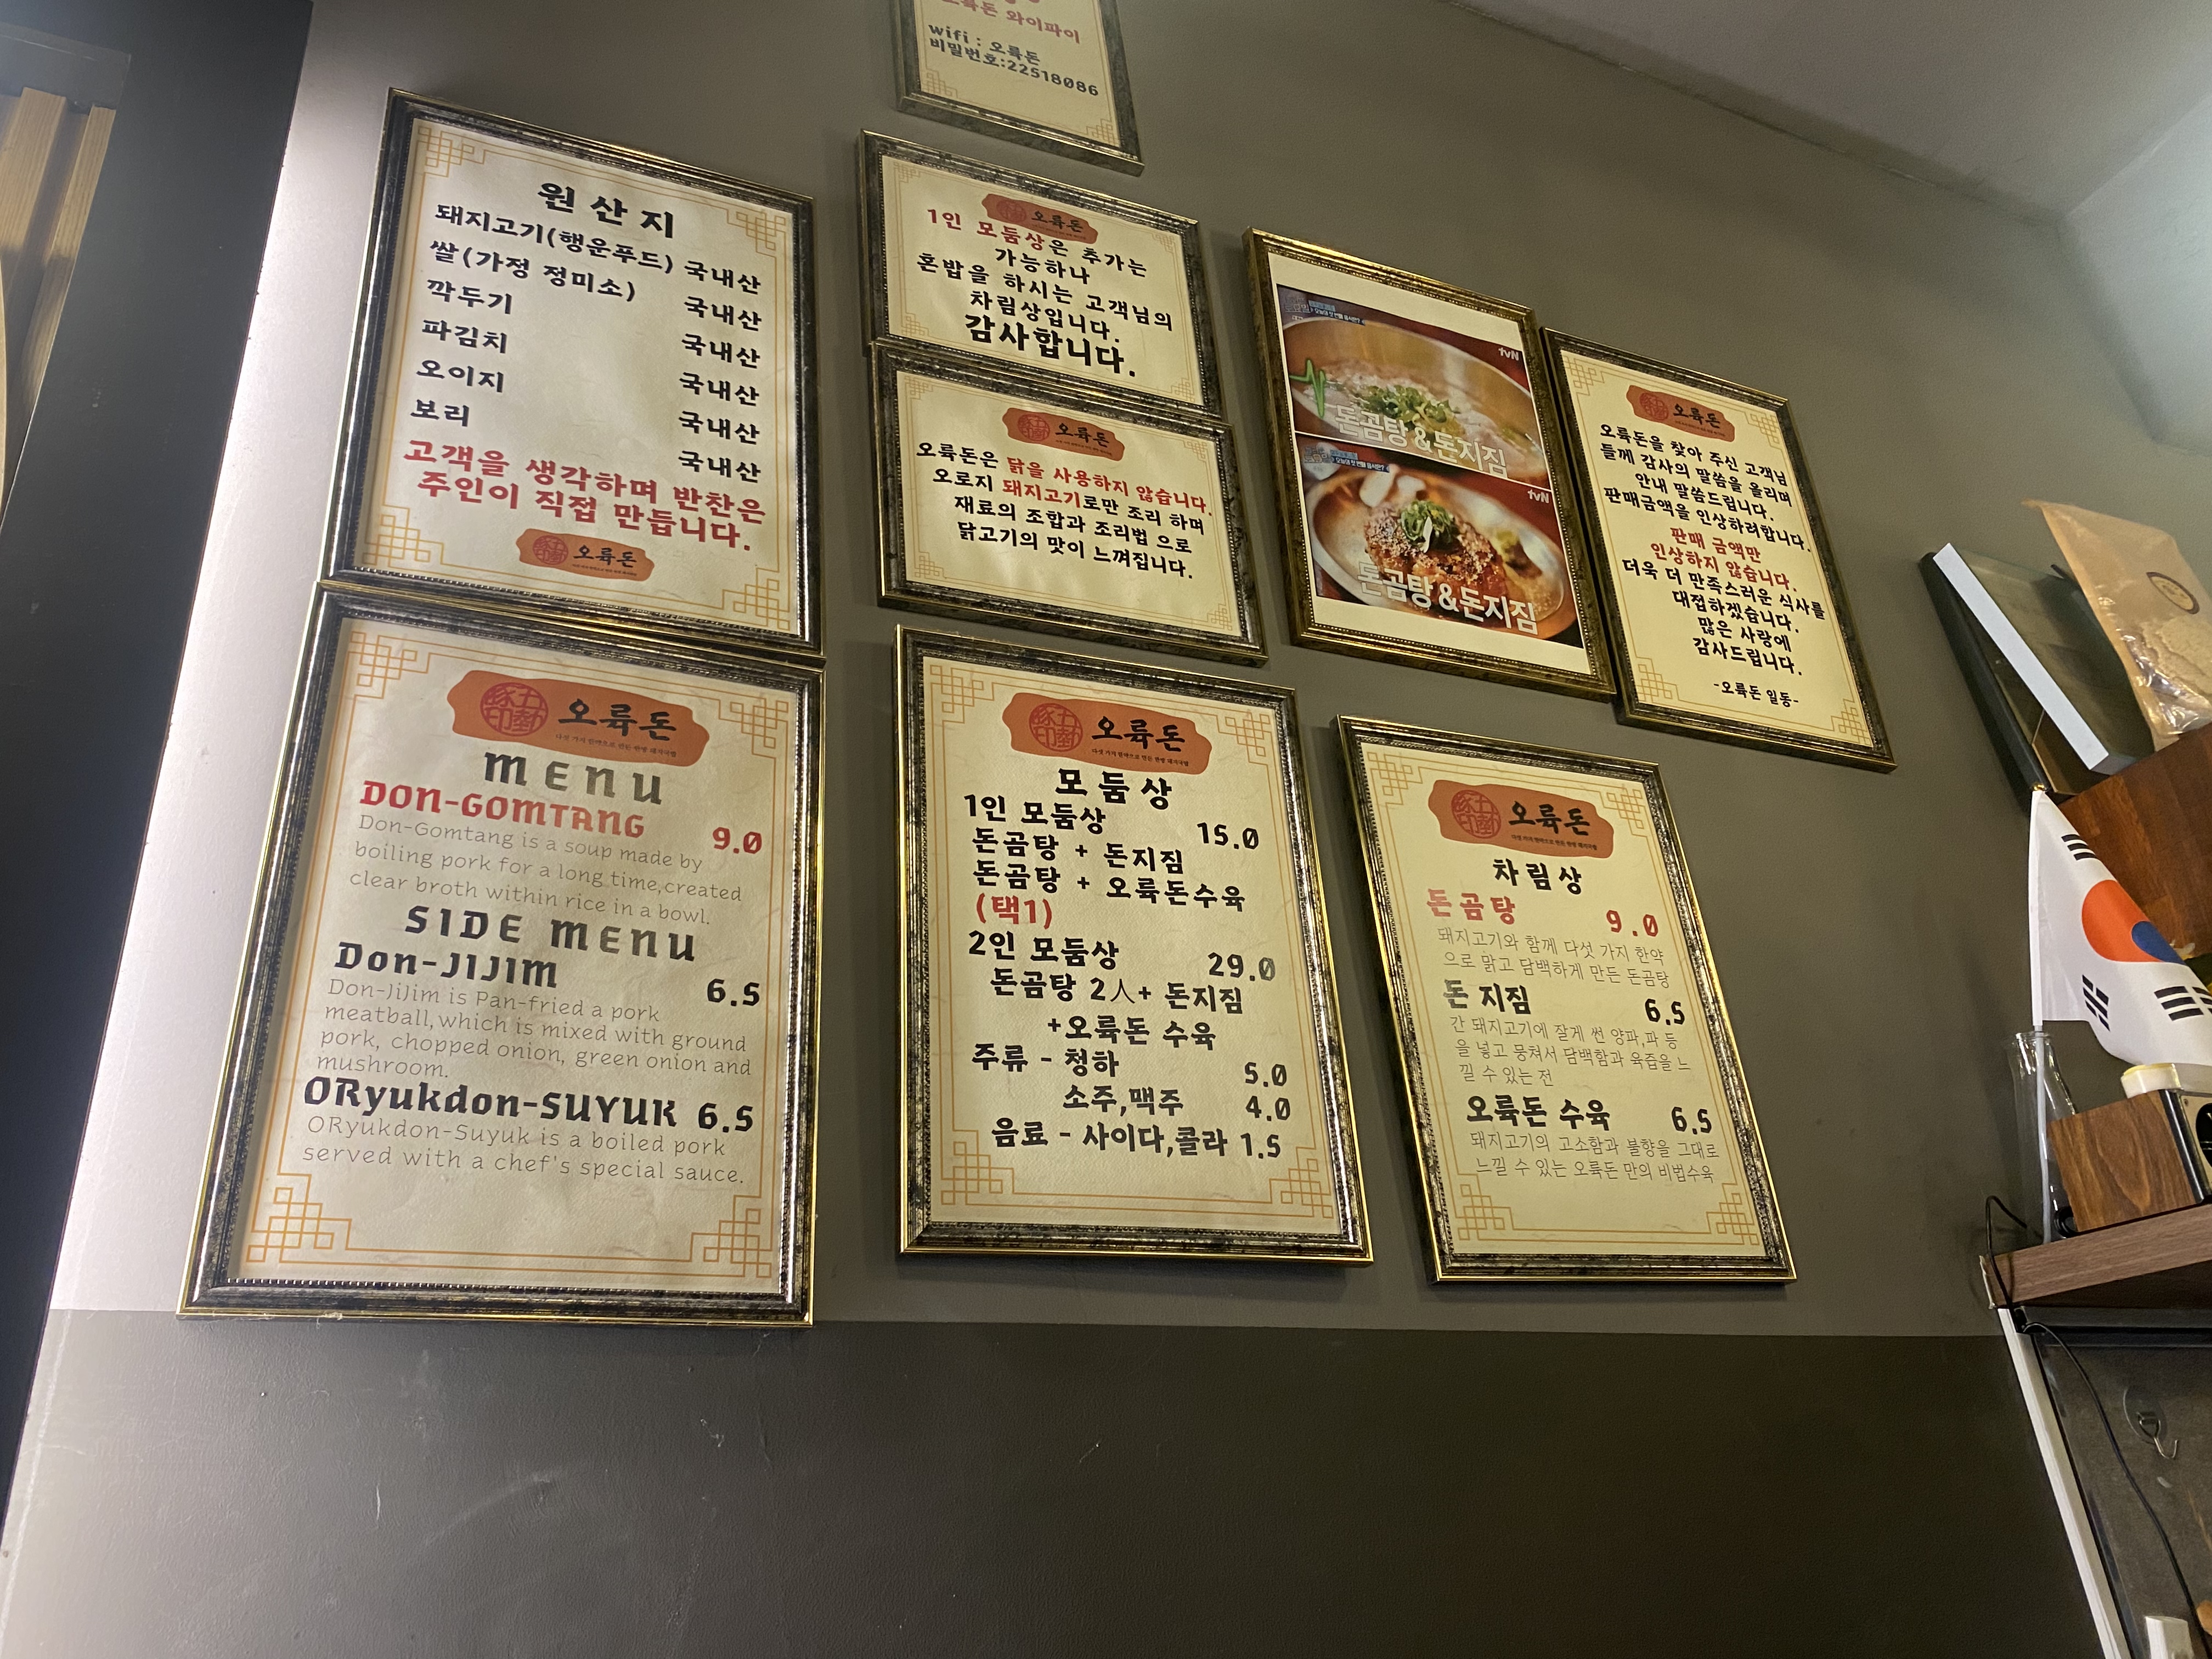 오륙돈 와이파이
wifi : 오륙돈
비밀번호:22518086
원산지
돼지고기(행운푸드) 국내산
쌀(가정 정미소) 국내산
깍두기 국내산
파김치 국내산
오이지 국내산
보리 국내산
고객을 생각하며 반찬은
주인이 직접 만듭니다.
오륙돈
오륙돈
1인 모둠상은 추가는
가능하나
혼밥을 하시는 고객님의
차림상입니다.
감사합니다.
오륙돈
오륙돈은 닭을 사용하지 않습니다.
오로지 돼지고기로만 조리 하며
재료의 조합과 조리법 으로
닭고기의 맛이 느껴집니다.
tvN
돈곰탕&돈지짐
tvN
돈곰탕&돈지짐
오륙돈
오륙돈을 찾아 주신 고객님
들께 감사의 말씀을 올리며
안내 말씀드립니다.
판매금액을 인상하려합니다.
판매 금액만
인상하지 않습니다.
더욱 더 만족스러운 식사를
대접하겠습니다.
많은 사랑에
감사드립니다.
-오륙돈 일동-
오륙돈
MENU
DON-GOMTANG 9.0
Don-Gomtang is a soup made by
boiling pork for a long time,created
clear broth within rice in a bowl.
SIDE MENU
Don-JIJIM 6.5
Don-JiJim is Pan-fried a pork
meatball,which is mixed with ground
pork, chopped onion, green onion and
mushroom.
ORyukdon-SUYUK 6.5
ORyukdon-Suyuk is a boiled pork
served with a chef's special sauce.
오륙돈
모둠상
1인 모둠상 15.0
돈곰탕 + 돈지짐
돈곰탕 + 오륙돈수육
(택1)
2인 모둠상 29.0
돈곰탕 2人+ 돈지짐
+오륙돈 수육
주류 - 청하 5.0
소주,맥주 4.0
음료 - 사이다,콜라 1.5
오륙돈
차림상
돈곰탕 9.0
돼지고기와 함께 다섯 가지 한약
으로 맑고 담백하게 만든 돈곰탕
돈 지짐 6.5
간 돼지고기에 잘게 썬 양파,파 등
을 넣고 뭉쳐서 담백함과 육즙을 느
낄 수 있는 전
오륙돈 수육 6.5
돼지고기의 고소함과 불향을 그대로
느낄 수 있는 오륙돈 만의 비법수육